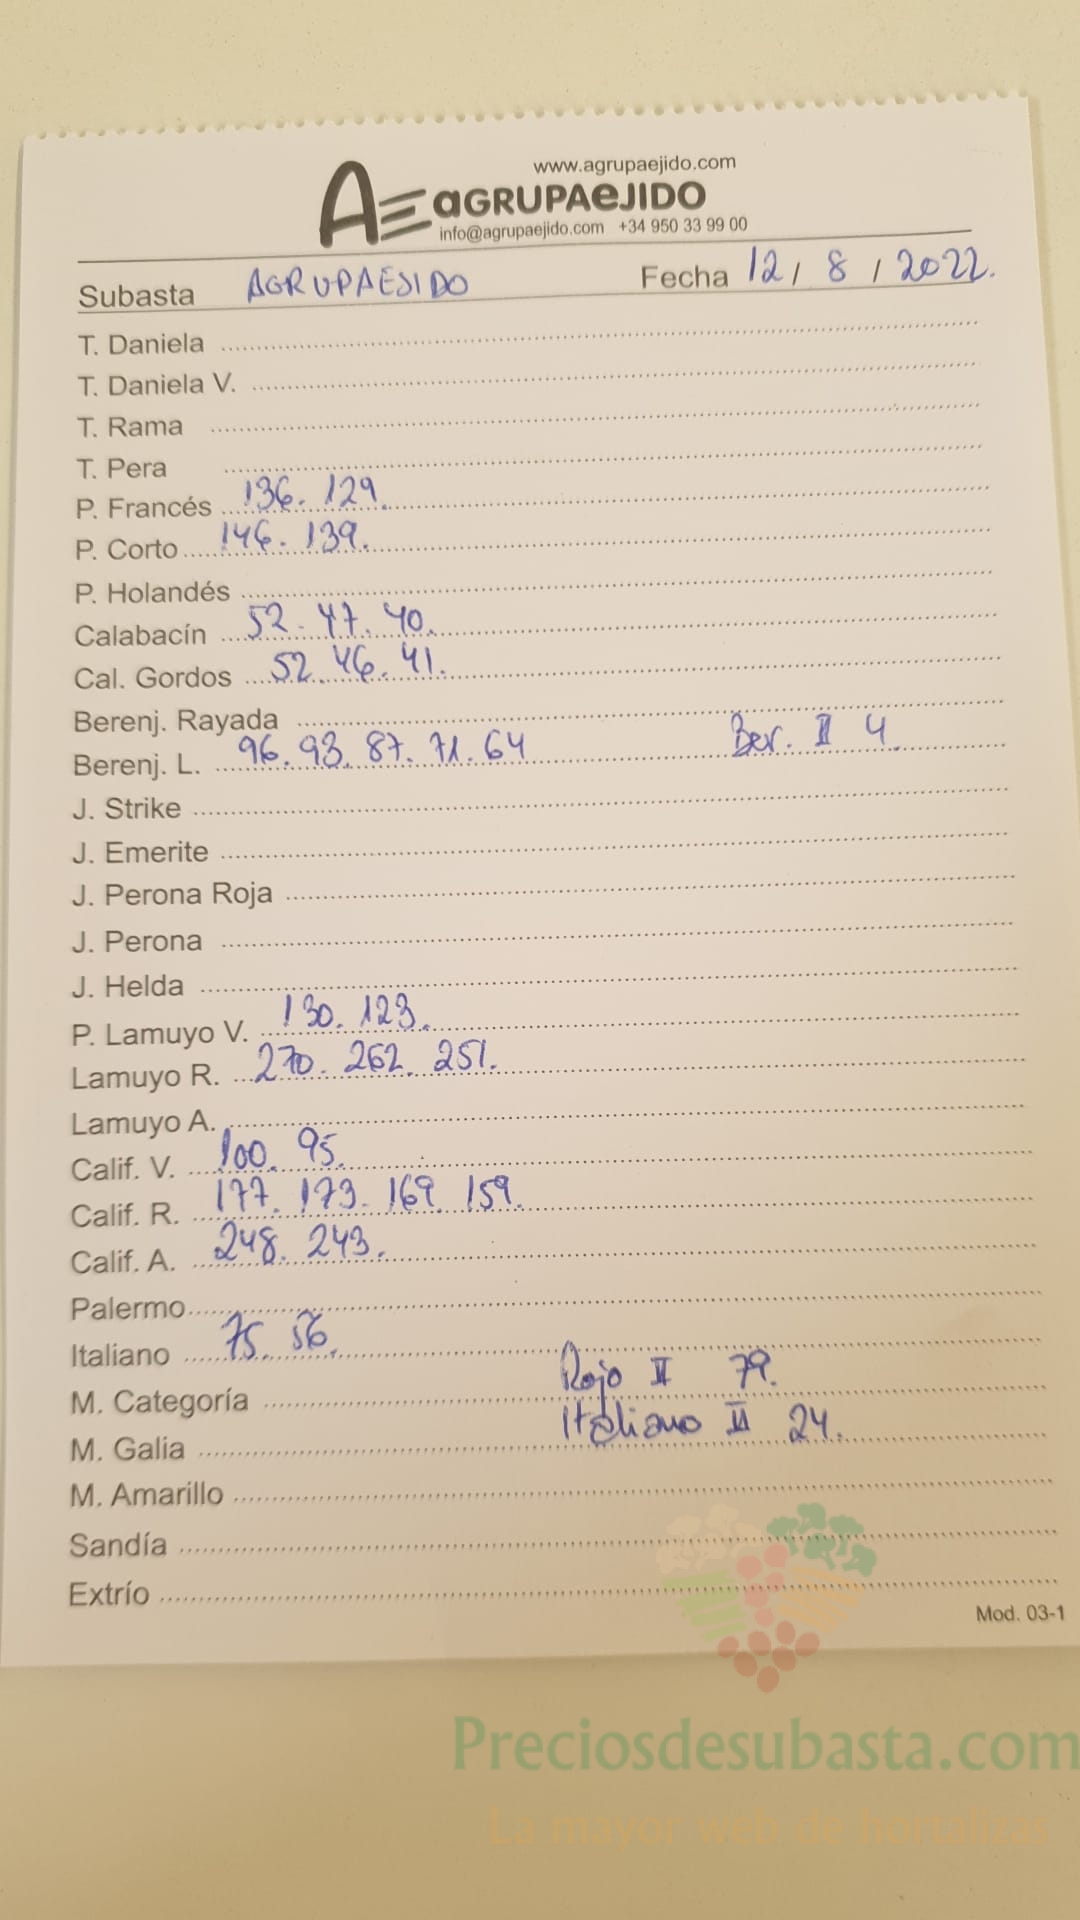 www.agrupaejido.com
AE aGRUPAeJIDO
info@agrupaejido.com +34 950 33 99 00
Subasta AGRUPAEJIDO Fecha 12 / 8 / 2022.
T. Daniela
T. Daniela V.
T. Rama
T. Pera
P. Francés 136. 129.
P. Corto 146. 139.
P. Holandés
Calabacín 52. 47. 40.
Cal. Gordos 52. 46. 41.
Berenj. Rayada
Berenj. L. 96. 93. 87. 71. 64 Ber. II 4.
J. Strike
J. Emerite
J. Perona Roja
J. Perona
J. Helda
P. Lamuyo V. 130. 123.
Lamuyo R. 270. 262. 251.
Lamuyo A.
Calif. V. 100. 95.
Calif. R. 177. 173. 169. 159.
Calif. A. 248. 243.
Palermo
Italiano 75. 56.
Rojo II 79.
M. Categoría
Italiano II 24.
M. Galia
M. Amarillo
Sandía
Extrío
Mod. 03-1
Preciosdesubasta.com
La mayor web de hortalizas